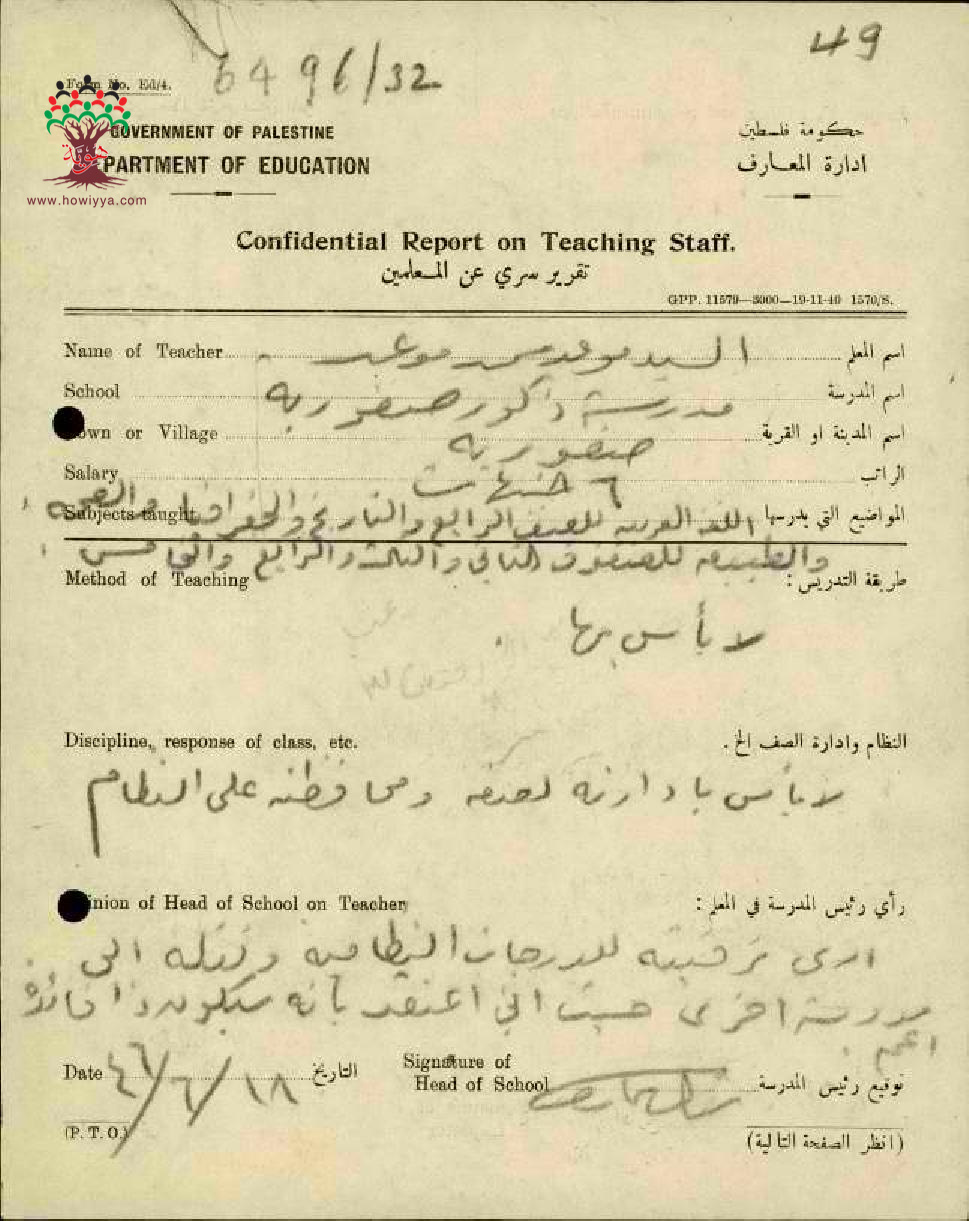 49
6496/32
Form No. Ed/4.
GOVERNMENT OF PALESTINE
حكومة فلسطين
PARTMENT OF EDUCATION
ادارة المعارف
www.howiyya.com
Confidential Report on Teaching Staff.
تقرير سري عن المعلمين
GPP. 11579—3000—19-11-40 1570/S.
Name of Teacher السيد موعد اسم المعلم
School مدرسة ذكور صفورية اسم المدرسة
own or Village صفورية اسم المدينة او القرية
Salary ٦ جنيهات الراتب
Subjects taught اللغة العربية للصف الرابع والتاريخ والجغرافيا والصحة المواضيع التي يدرسها
والطبيعة للصفوف الثاني والثالث والرابع والخامس
Method of Teaching طريقة التدريس :
لا بأس بها .
Discipline, response of class, etc. النظام وادارة الصف الخ .
لا بأس بادارته لصفه ومحافظته على النظام
inion of Head of School on Teacher رأي رئيس المدرسة في المعلم :
ارى ترقيته للدرجات النظامية ونقله الى
مدرسة اخرى حيث اني اعتقد بأنه سيكون ذا فائدة
اعم .
Date ٤٦/٦/١٨ التاريخ
Signature of
Head of School توقيع رئيس المدرسة
(P. T. O.)
(انظر الصفحة التالية)